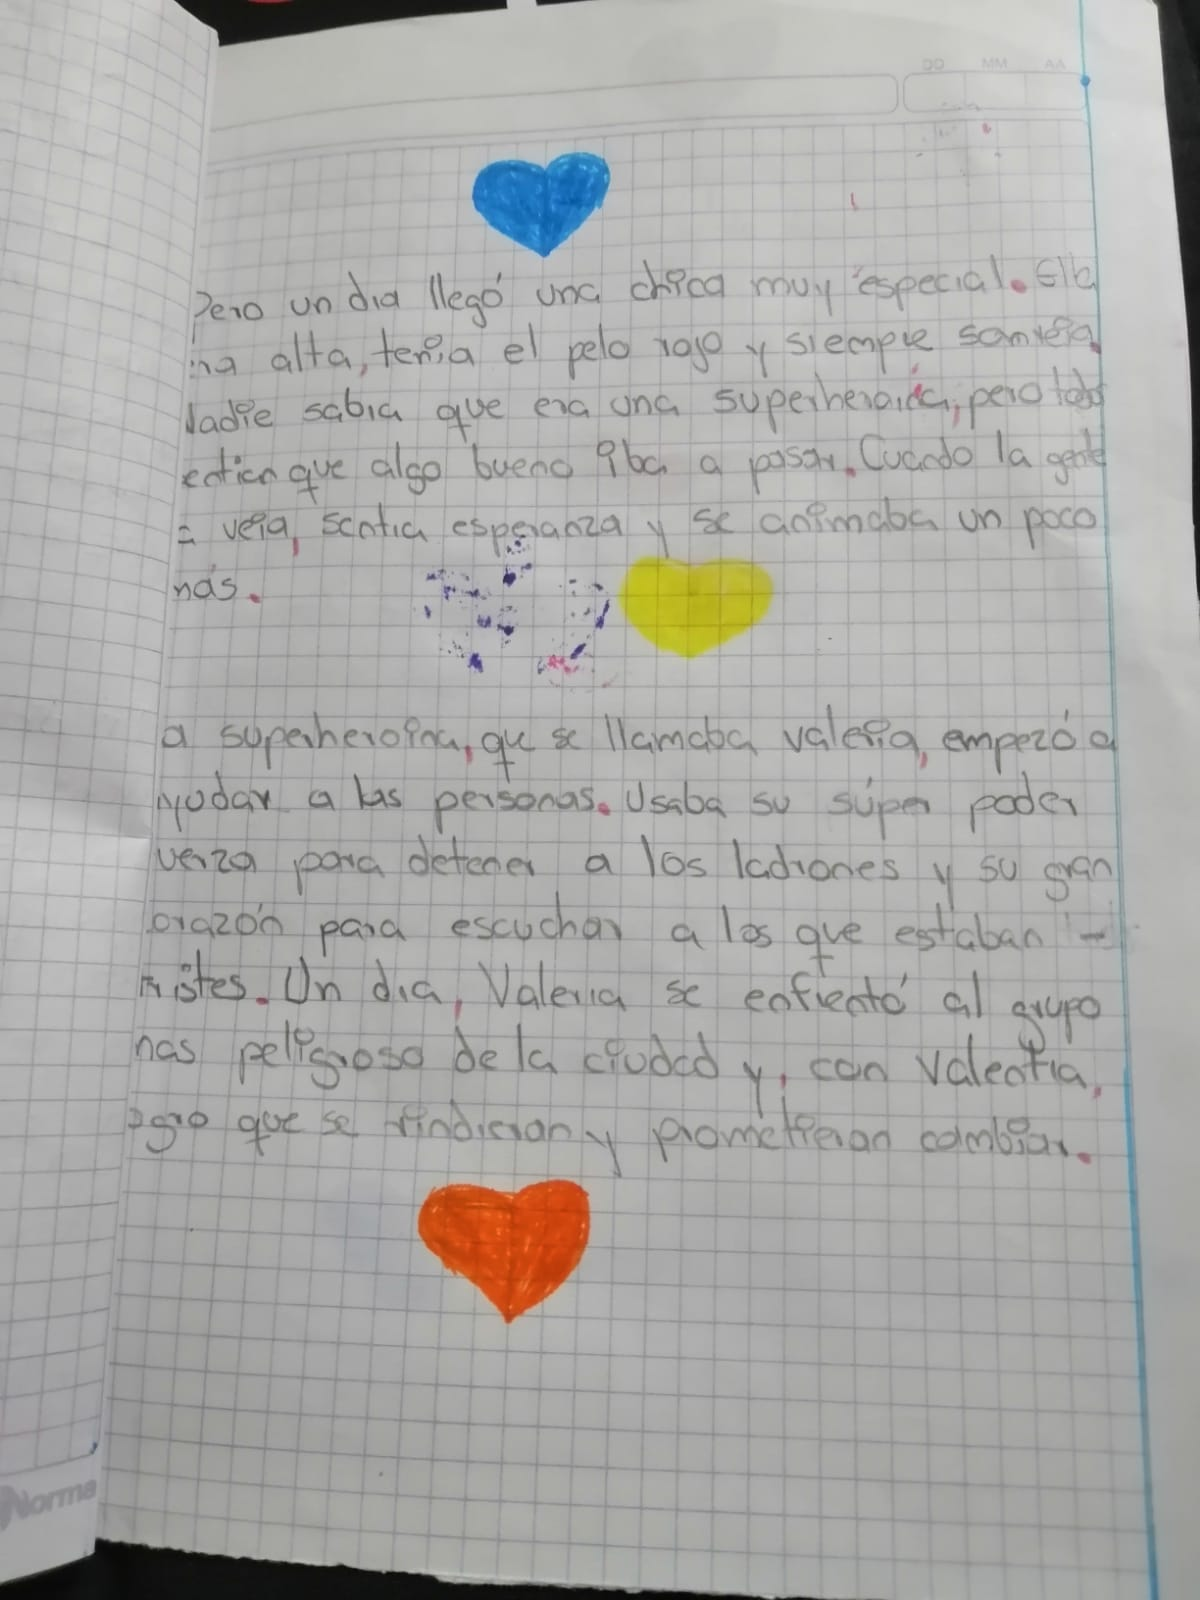 DD MM AA
Pero un dia llegó una chica muy especial. Ella
ra alta, tenia el pelo rojo y siempre sonreia.
Nadie sabia que era una superheroica, pero todos
entian que algo bueno iba a pasar. Cuando la gente
a veia, sentia esperanza y se animaba un poco
más.
a superheroina, que se llamaba valeria, empezó a
yudar a las personas. Usaba su súper poder
uerza para detener a los ladrones y su gran
orazón para escuchar a los que estaban -
ristes. Un dia, Valeria se enfrentó al grupo
mas peligroso de la ciudad y, con valentia,
ogro que se rindieran y prometieran cambiar.
Norma